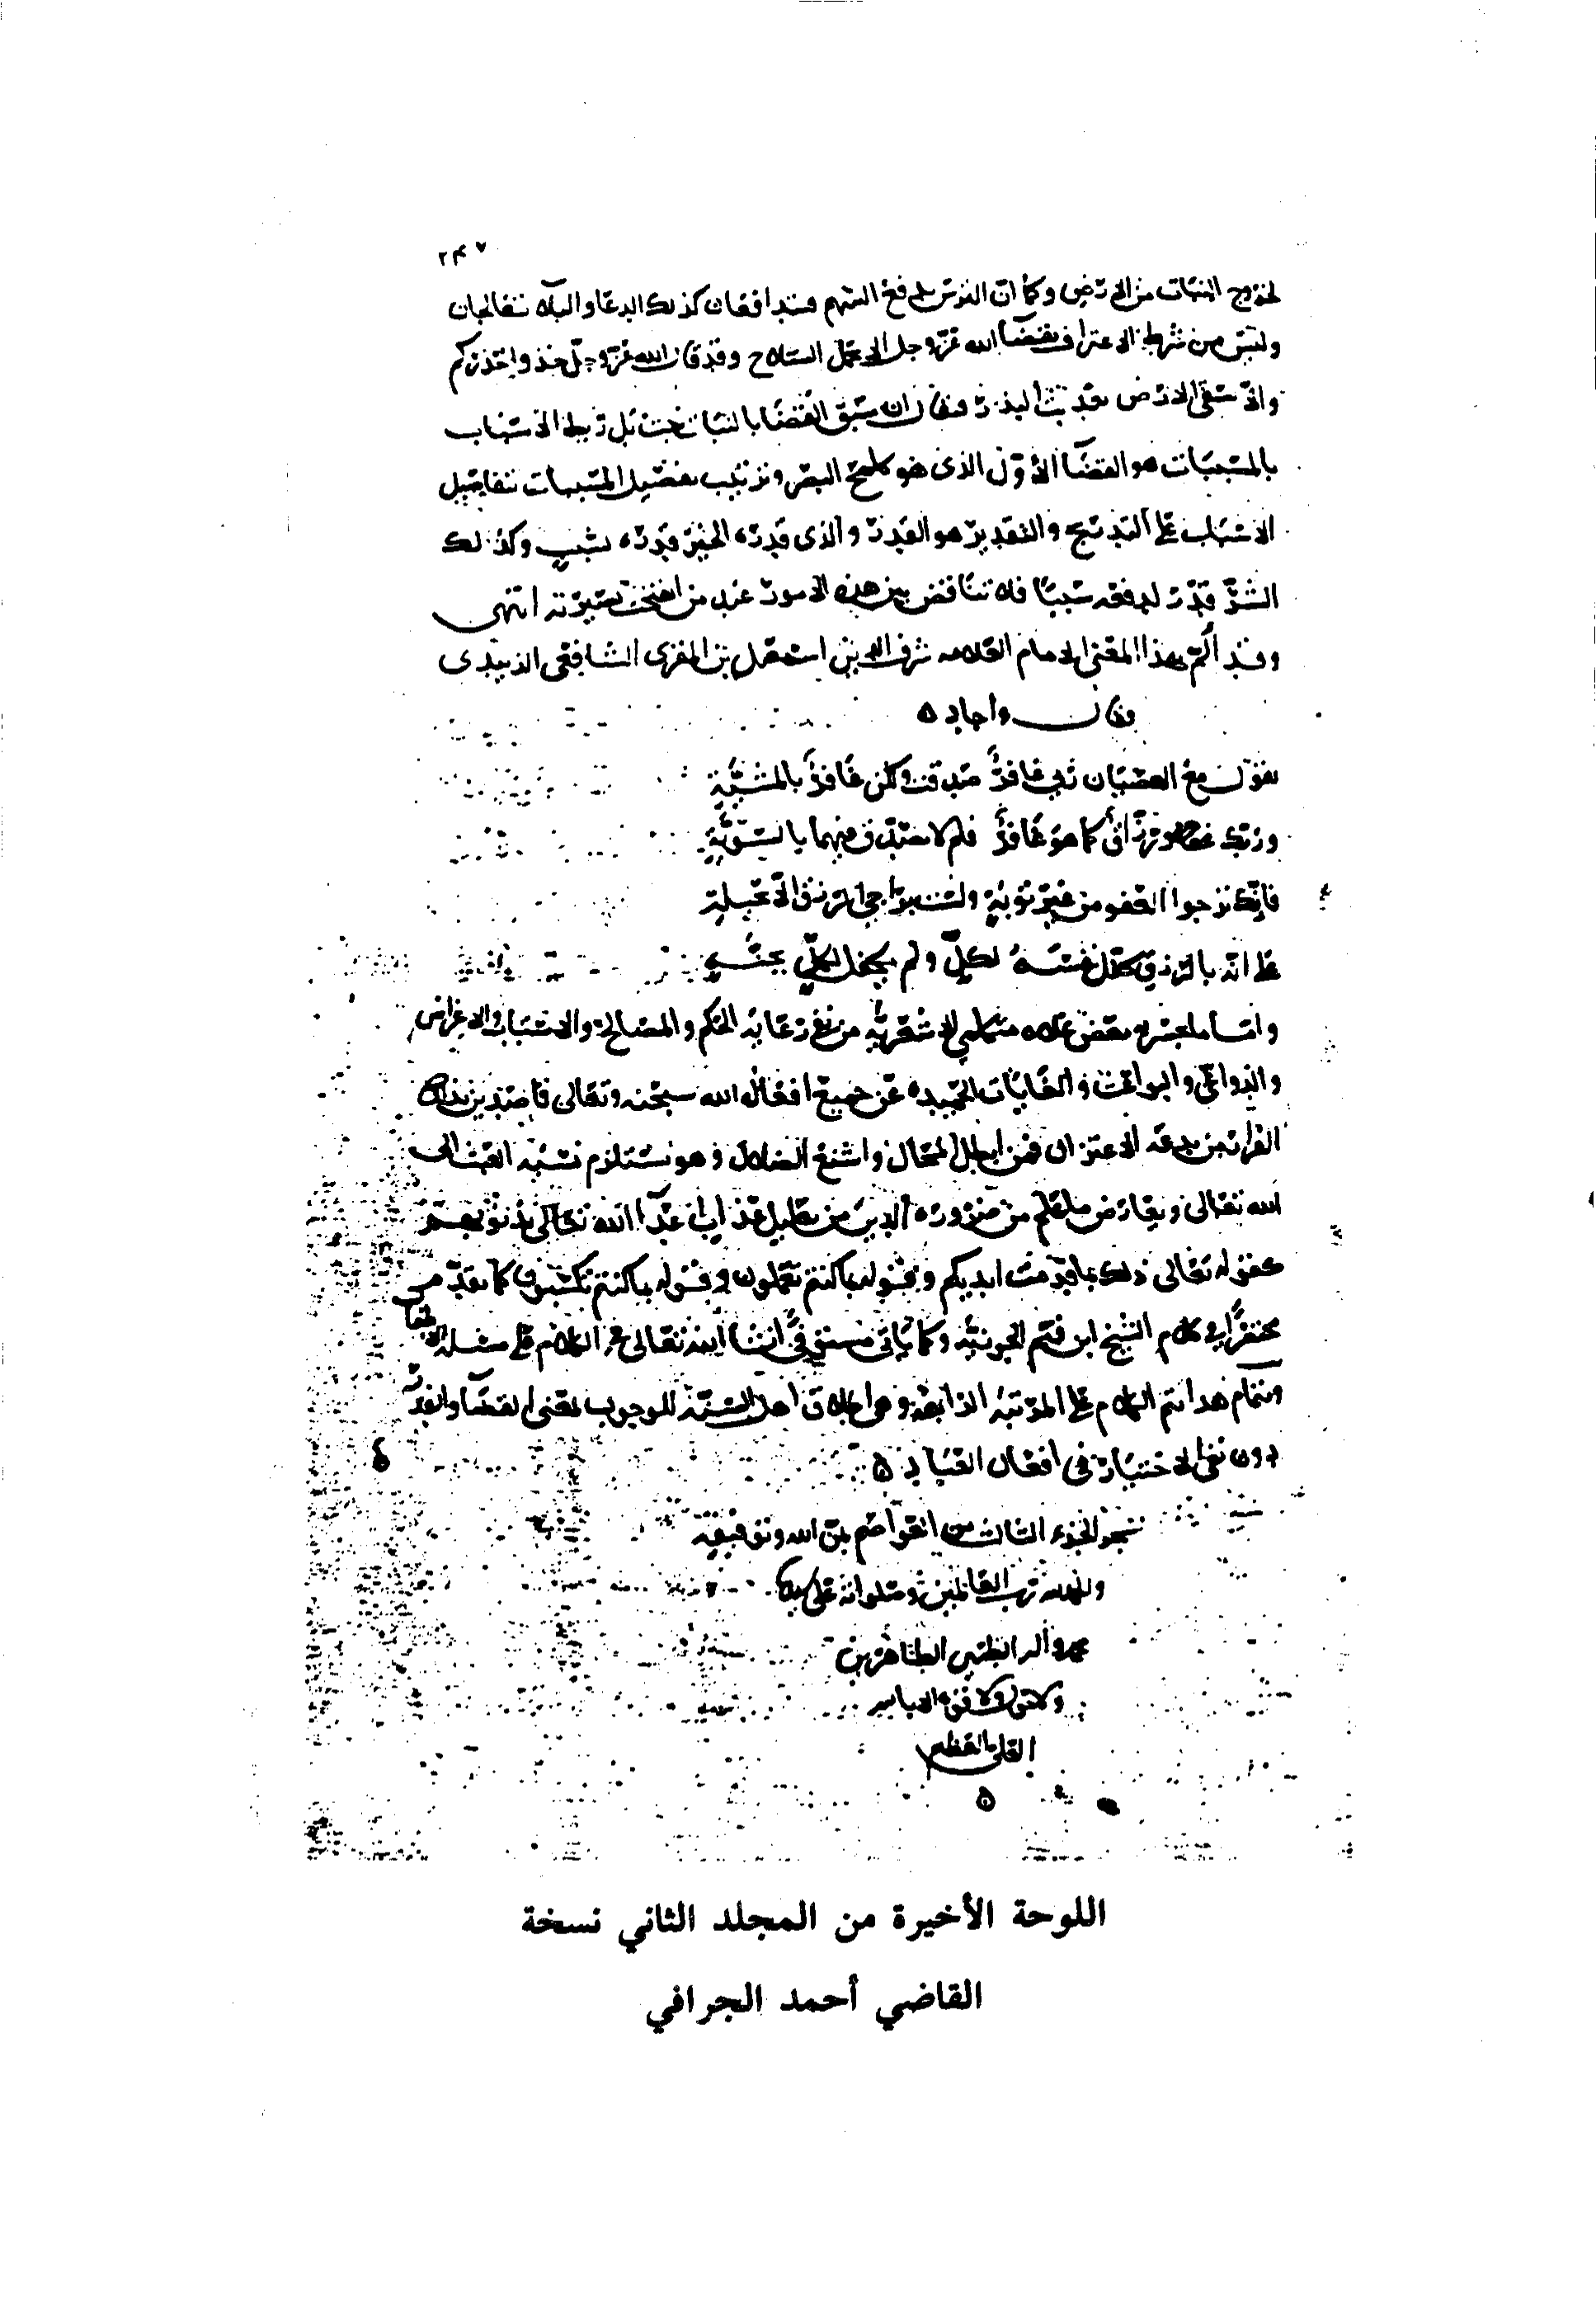 ٢٤٧
لخروج النبات من الارض وكما ان الترس يدفع السهم فيتدافعان كذلك الدعا والبلاء يتعالجان
وليس من شرط الاعتراف بقضآ الله عز وجل الا يحمل السلاح وقد قال الله عز وجل خذوا حذركم
والا يسقى الارض بعد بث البذر فيقال ان سبق القضا بالنبات نبت بل ربط الاسباب
بالمسببات هو القضآ الأول الذي هو كلمح البصر وترتيب تفصيل المسببات بتفاصيل
الاسباب على التدريج والتقدير هو القدر والذي قدره الخير قدره بسبب وكذلك
الشر قدر لدفعه سببًا فلا تناقض بين هذه الامور عند من انفتحت بصيرته انتهى
وقد ألم بهذا المعنى الامام العلامه شرف الدين اسمعيل بن المقري الشافعي الزبيدي
وقال وأجاد ٥
تقول مع العصيان ربي غافرٌ صدقت ولكن غافرٌ بالمشيّةِ
وربك رزاقٌ كما هو غافرٌ فلم لا تصدق فيهما بالسويّةِ
فانك ترجوا العفو من غير توبةٍ ولست براجي الرزق الا بحيلة
على انه بالرزق كفل نفسه لكلٍّ ولم يكفل لكلٍّ بجنّةِ
واما ما يعتبر به بعض غلاه متكلمي الاشعرية من نفي رعاية الحكم والمصالح والاسباب والاغراض
والدواعي والبواعث والغايات الحميده عن جميع افعال الله سبحنه وتعالى قاصدين بذلك
الفرار من بدعة الاعتزال فمن ابطل المحال واشنع الضلال وهو يستلزم نسبة العبث الى
الله تعالى ويعارض ما علم من ضرورة الدين من تعليل عذاب اعدآ الله تعالى بذنوبهم
كقوله تعالى ذلك بما قدمت ايديكم وبقوله بما كنتم تعملون وبقوله بما كنتم تكسبون كما تقدم
مختصرًا في كلام الشيخ ابن قيم الجوزيه وكما يأتي مستوفىً انشا الله تعالى في الكلام على مسئله الافعال
وبتمام هذا تم الكلام على المرتبة الرابعة وهي اطلاق اهل السنة للوجوب بمعنى القضآ والقدر
دون نفي الاختيار في افعال العباد ٥
نجز الجزء الثالث من العواصم بمن الله وتوفيقه
والحمدلله رب العالمين وصلواته على سيدنا
محمد وآله الطيبين الطاهرين
ولا حول ولا قوة الا بالله
العلي العظيم
٥
اللوحة الأخيرة من المجلد الثاني نسخة
القاضي أحمد الجرافي